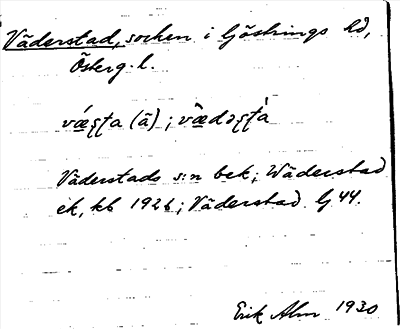 Väderstad, socken i Göstrings hd,
Österg. l.
væʂʈa (ä); vædəʂʈa
Väderstads s:n bek; Wäderstad
ek, kb 1926; Väderstad G 44.
Erik Alm 1930